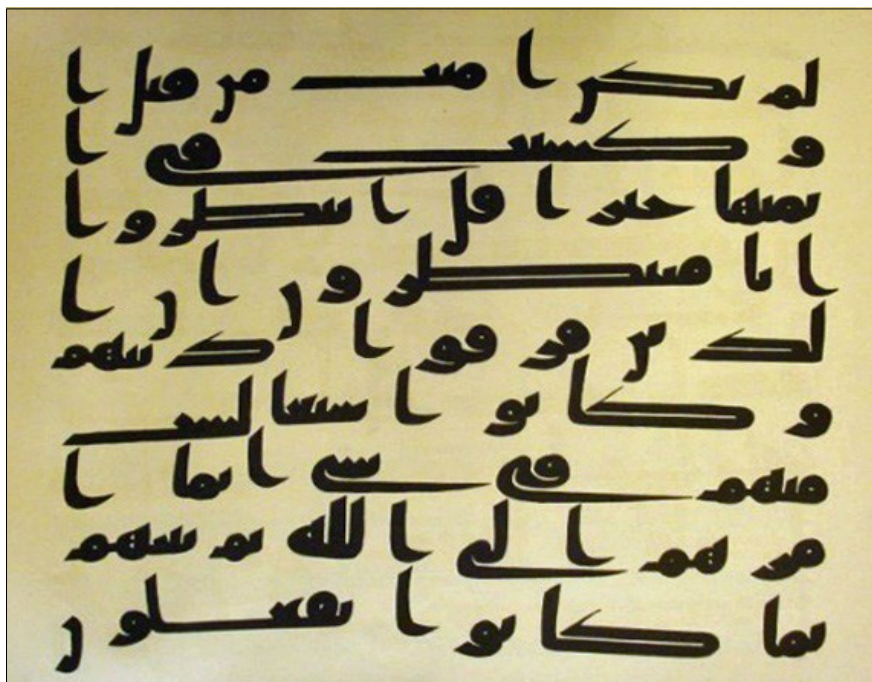 لم تكن امنت من قبل ا
و كسبت في ا
يمنها خيرا قل انتظروا
انا منتظرون ان ا
لذين فرقوا دينهم
و كانوا شيعا لست
منهم في شي انما ا
مرهم الى الله ثم ينبئهم
بما كانوا يفعلون